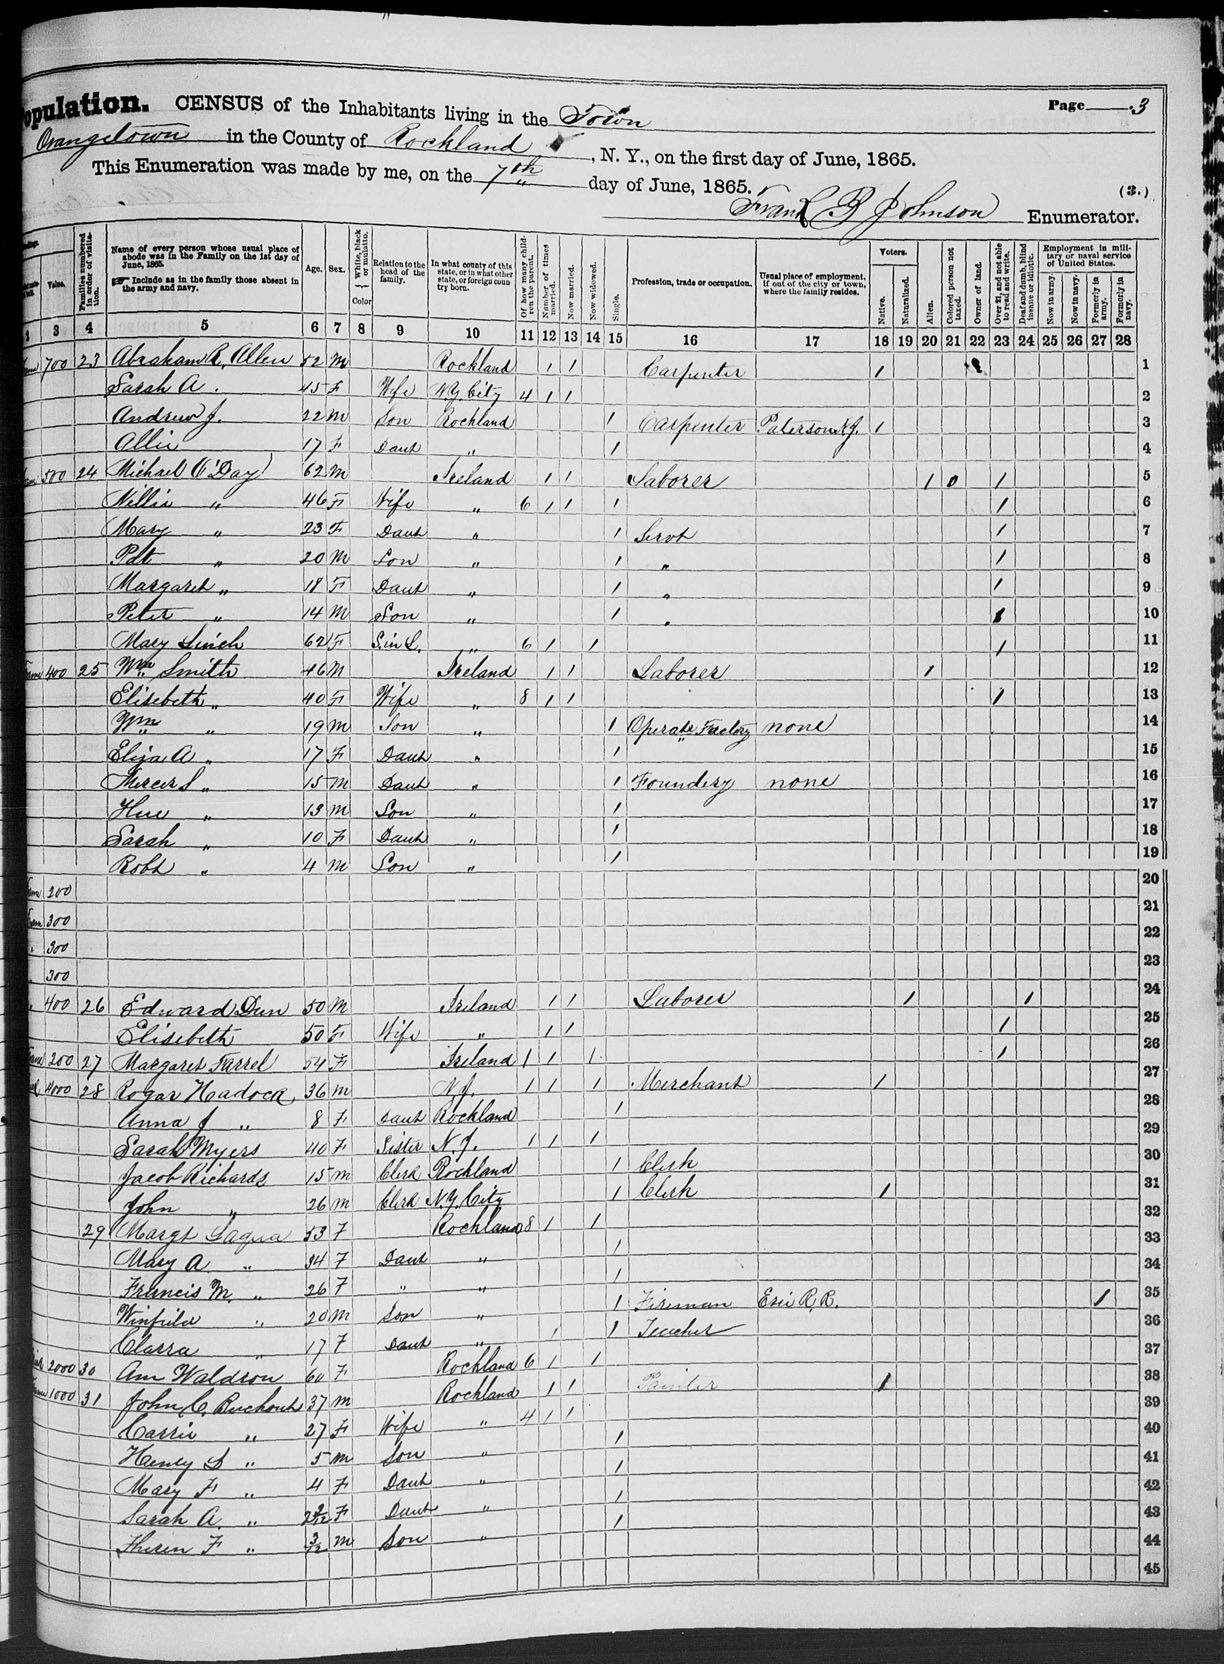 opulation. CENSUS of the Inhabitants living in the Town Page 3
Orangetown in the County of Rockland, N. Y., on the first day of June, 1865.
This Enumeration was made by me, on the 7th day of June, 1865. (3.)
Frank B Johnson Enumerator.
Value. Families numbered in order of visitation. Name of every person whose usual place of abode was in the Family on the 1st day of June, 1865. Include as in the family those absent in the army and navy. Age. Sex. White, black or mulatto. Color Relation to the head of the family. In what county of this state, or in what other state, or foreign country born. Of how many children the parent. Number of times married. Now married. Now widowed. Single. Profession, trade or occupation. Usual place of employment, if out of the city or town, where the family resides. Voters. Native. Naturalized. Alien. Colored person not taxed. Owner of land. Over 21, and not able to read and write. Deaf and dumb, blind insane or idiotic. Employment in military or naval service of United States. Now in army. Now in navy. Formerly in army. Formerly in navy.
3 4 5 6 7 8 9 10 11 12 13 14 15 16 17 18 19 20 21 22 23 24 25 26 27 28
700 23 Abraham R. Allen 52 M Rockland 1 1 Carpenter 1 1
Sarah A. 45 F Wife N.Y. City 4 1 1 2
Andrew J. 22 M Son Rockland 1 Carpenter Paterson N.J. 1 3
Allie 17 F Daut " 1 4
500 24 Michael O'Day 62 M Ireland 1 1 Laborer 1 0 1 5
Nillie " 46 F Wife " 6 1 1 1 1 6
Mary " 23 F Daut " 1 Servt 1 7
Pat " 20 M Son " 1 " 1 8
Margaret " 18 F Daut " 1 " 1 9
Peter " 14 M Son " 1 " 1 10
Mary Linch 62 F S. in L. " 6 1 1 1 11
400 25 Wm Smith 46 M Ireland 1 1 Laborer 1 12
Elisebeth " 40 F Wife " 8 1 1 1 13
Wm " 19 M Son " 1 Operatr Factory none 14
Eliza A " 17 F Daut " 1 15
15 M Daut " 1 Foundery none 16
Hue " 13 M Son " 1 17
Sarah " 10 F Daut " 1 18
Robt " 4 M Son " 1 19
200 20
300 21
300 22
300 23
400 26 Edward Dun 50 M Ireland 1 1 Laborer 1 1 24
Elisebeth 50 F Wife " 1 1 1 25
200 27 Margaret Farrel 54 F Ireland 1 1 1 1 26
4000 28 Rogar Hadock 36 M N.J. 1 1 1 Merchant 1 27
Anna J " 8 F Daut Rockland 1 28
Sarah Myers 40 F Sister N.J. 1 1 1 29
Jacob Richards 15 M Clerk Rockland 1 Clerk 30
John " 26 M Clerk N.Y. City 1 Clerk 1 31
29 Margt Laqua 53 F Rockland 8 1 1 32
Mary A. " 34 F Daut " 1 33
Francis M. " 26 F " " 1 34
Winfield " 20 M Son " 1 Fireman Erie R.R. 1 35
Clarra " 17 F Daut " 1 1 Teacher 36
2000 30 Ann Waldron 60 F Rockland 6 1 1 37
1000 31 John C. 37 M Rockland 1 1 Painter 1 38
Carrie " 27 F Wife " 4 1 1 39
Henry S " 5 M Son " 1 40
Mary F " 4 F Daut " 1 41
Sarah A. " 2 2/12 F Daut " 1 42
F " 3/12 M Son " 1 43
44
45